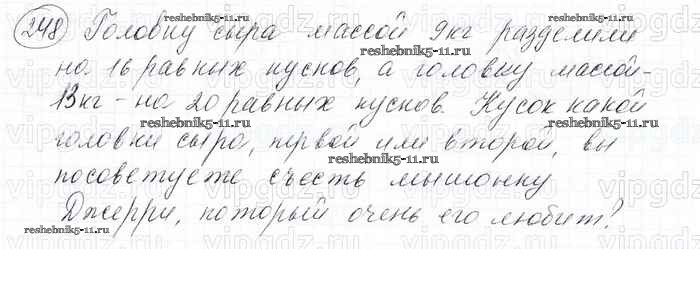 248 Головку сыра массой 9кг разделили
reshebnik5-11.ru
reshebnik5-11.ru
на 16 равных кусков, а головку массой -
reshebnik5-11.ru
13кг - на 20 равных кусков. Кусок какой
reshebnik5-11.ru
reshebnik5-11.ru
головки сыра, первой или второй, вы
reshebnik5-11.ru
посоветуете съесть мышонку
Джерри, который очень его любит?
reshebnik5-11.ru